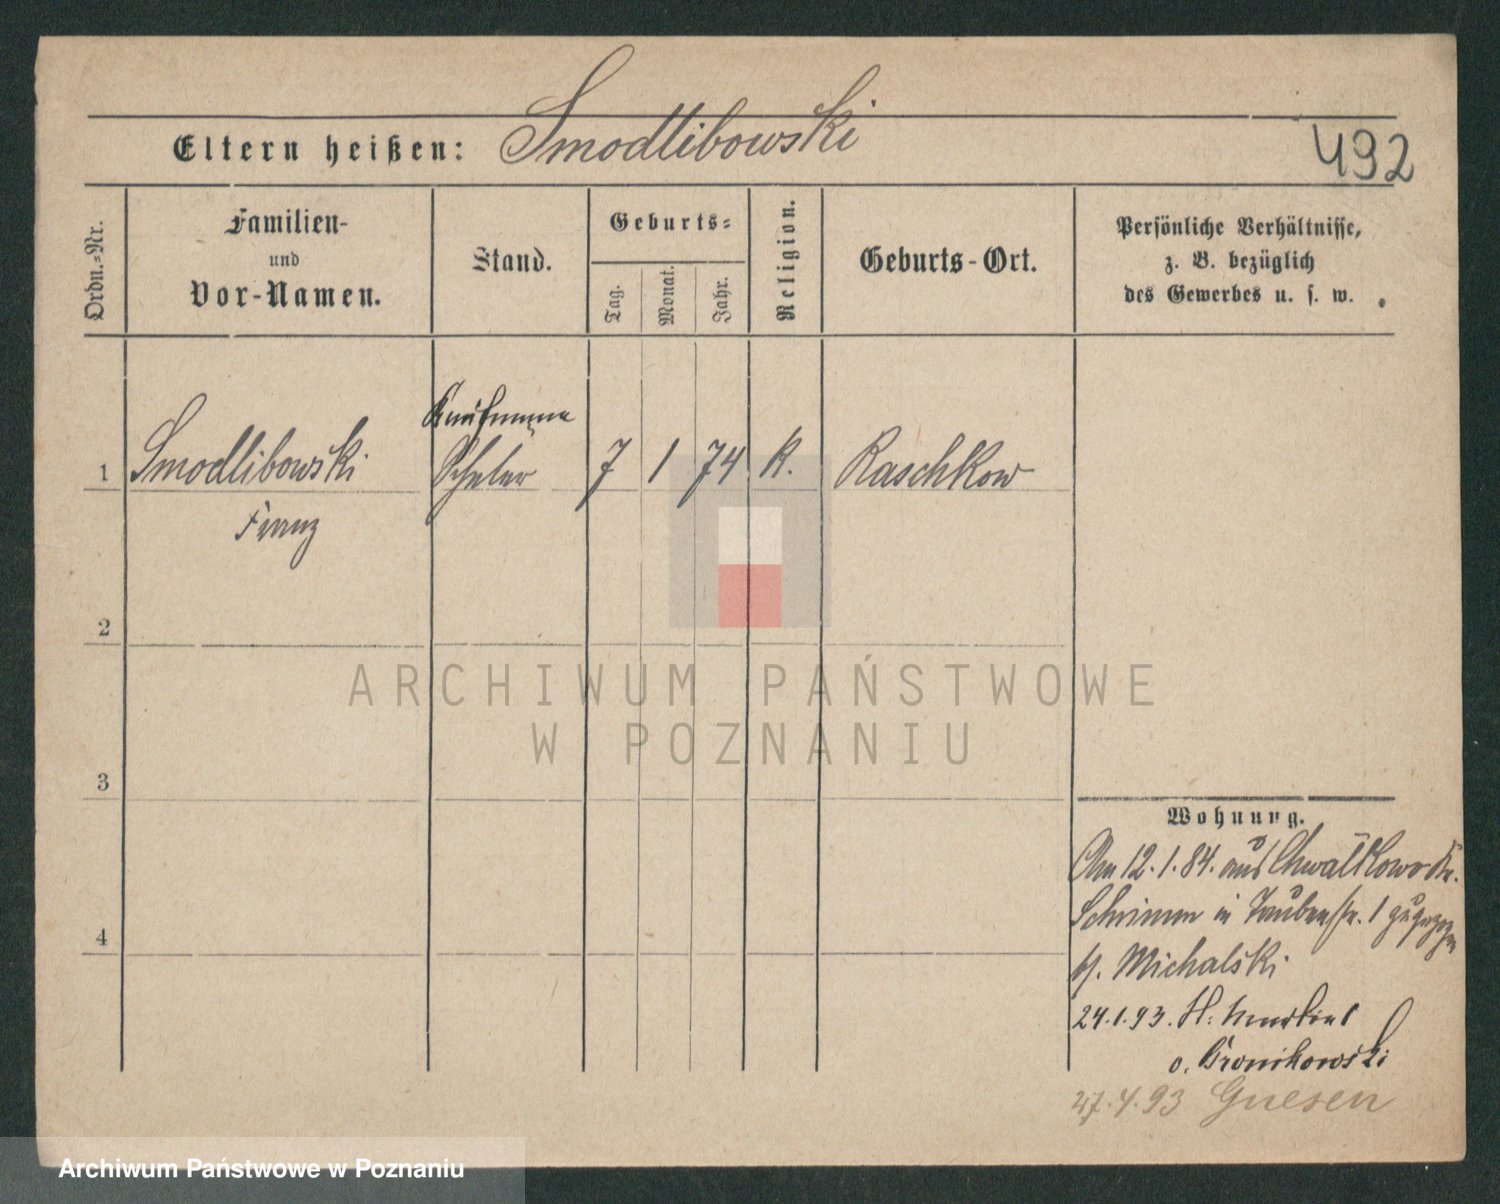 Eltern heißen: Smodlibowski
492
Ordn.-Nr.
Familien-
und
Vor-Namen.
Stand.
Geburts-
Tag.
Monat.
Jahr.
Religion.
Geburts-Ort.
Persönliche Verhältnisse,
z. B. bezüglich
des Gewerbes u. s. w.
Kaufmann
1 Smodlibowski Schüler 7 1 74 k. Raschkow
Franz
2
ARCHIWUM PAŃSTWOWE
W POZNANIU
3
Wohnung.
Am 12.1.84. aus Chwałkowo Kr.
Schrimm in Taubenstr. 1 zugezogen
b/. Michalski
4
24.1.93. St. Martin
b. Bronikowski
27.4.93 Gnesen
Archiwum Państwowe w Poznaniu